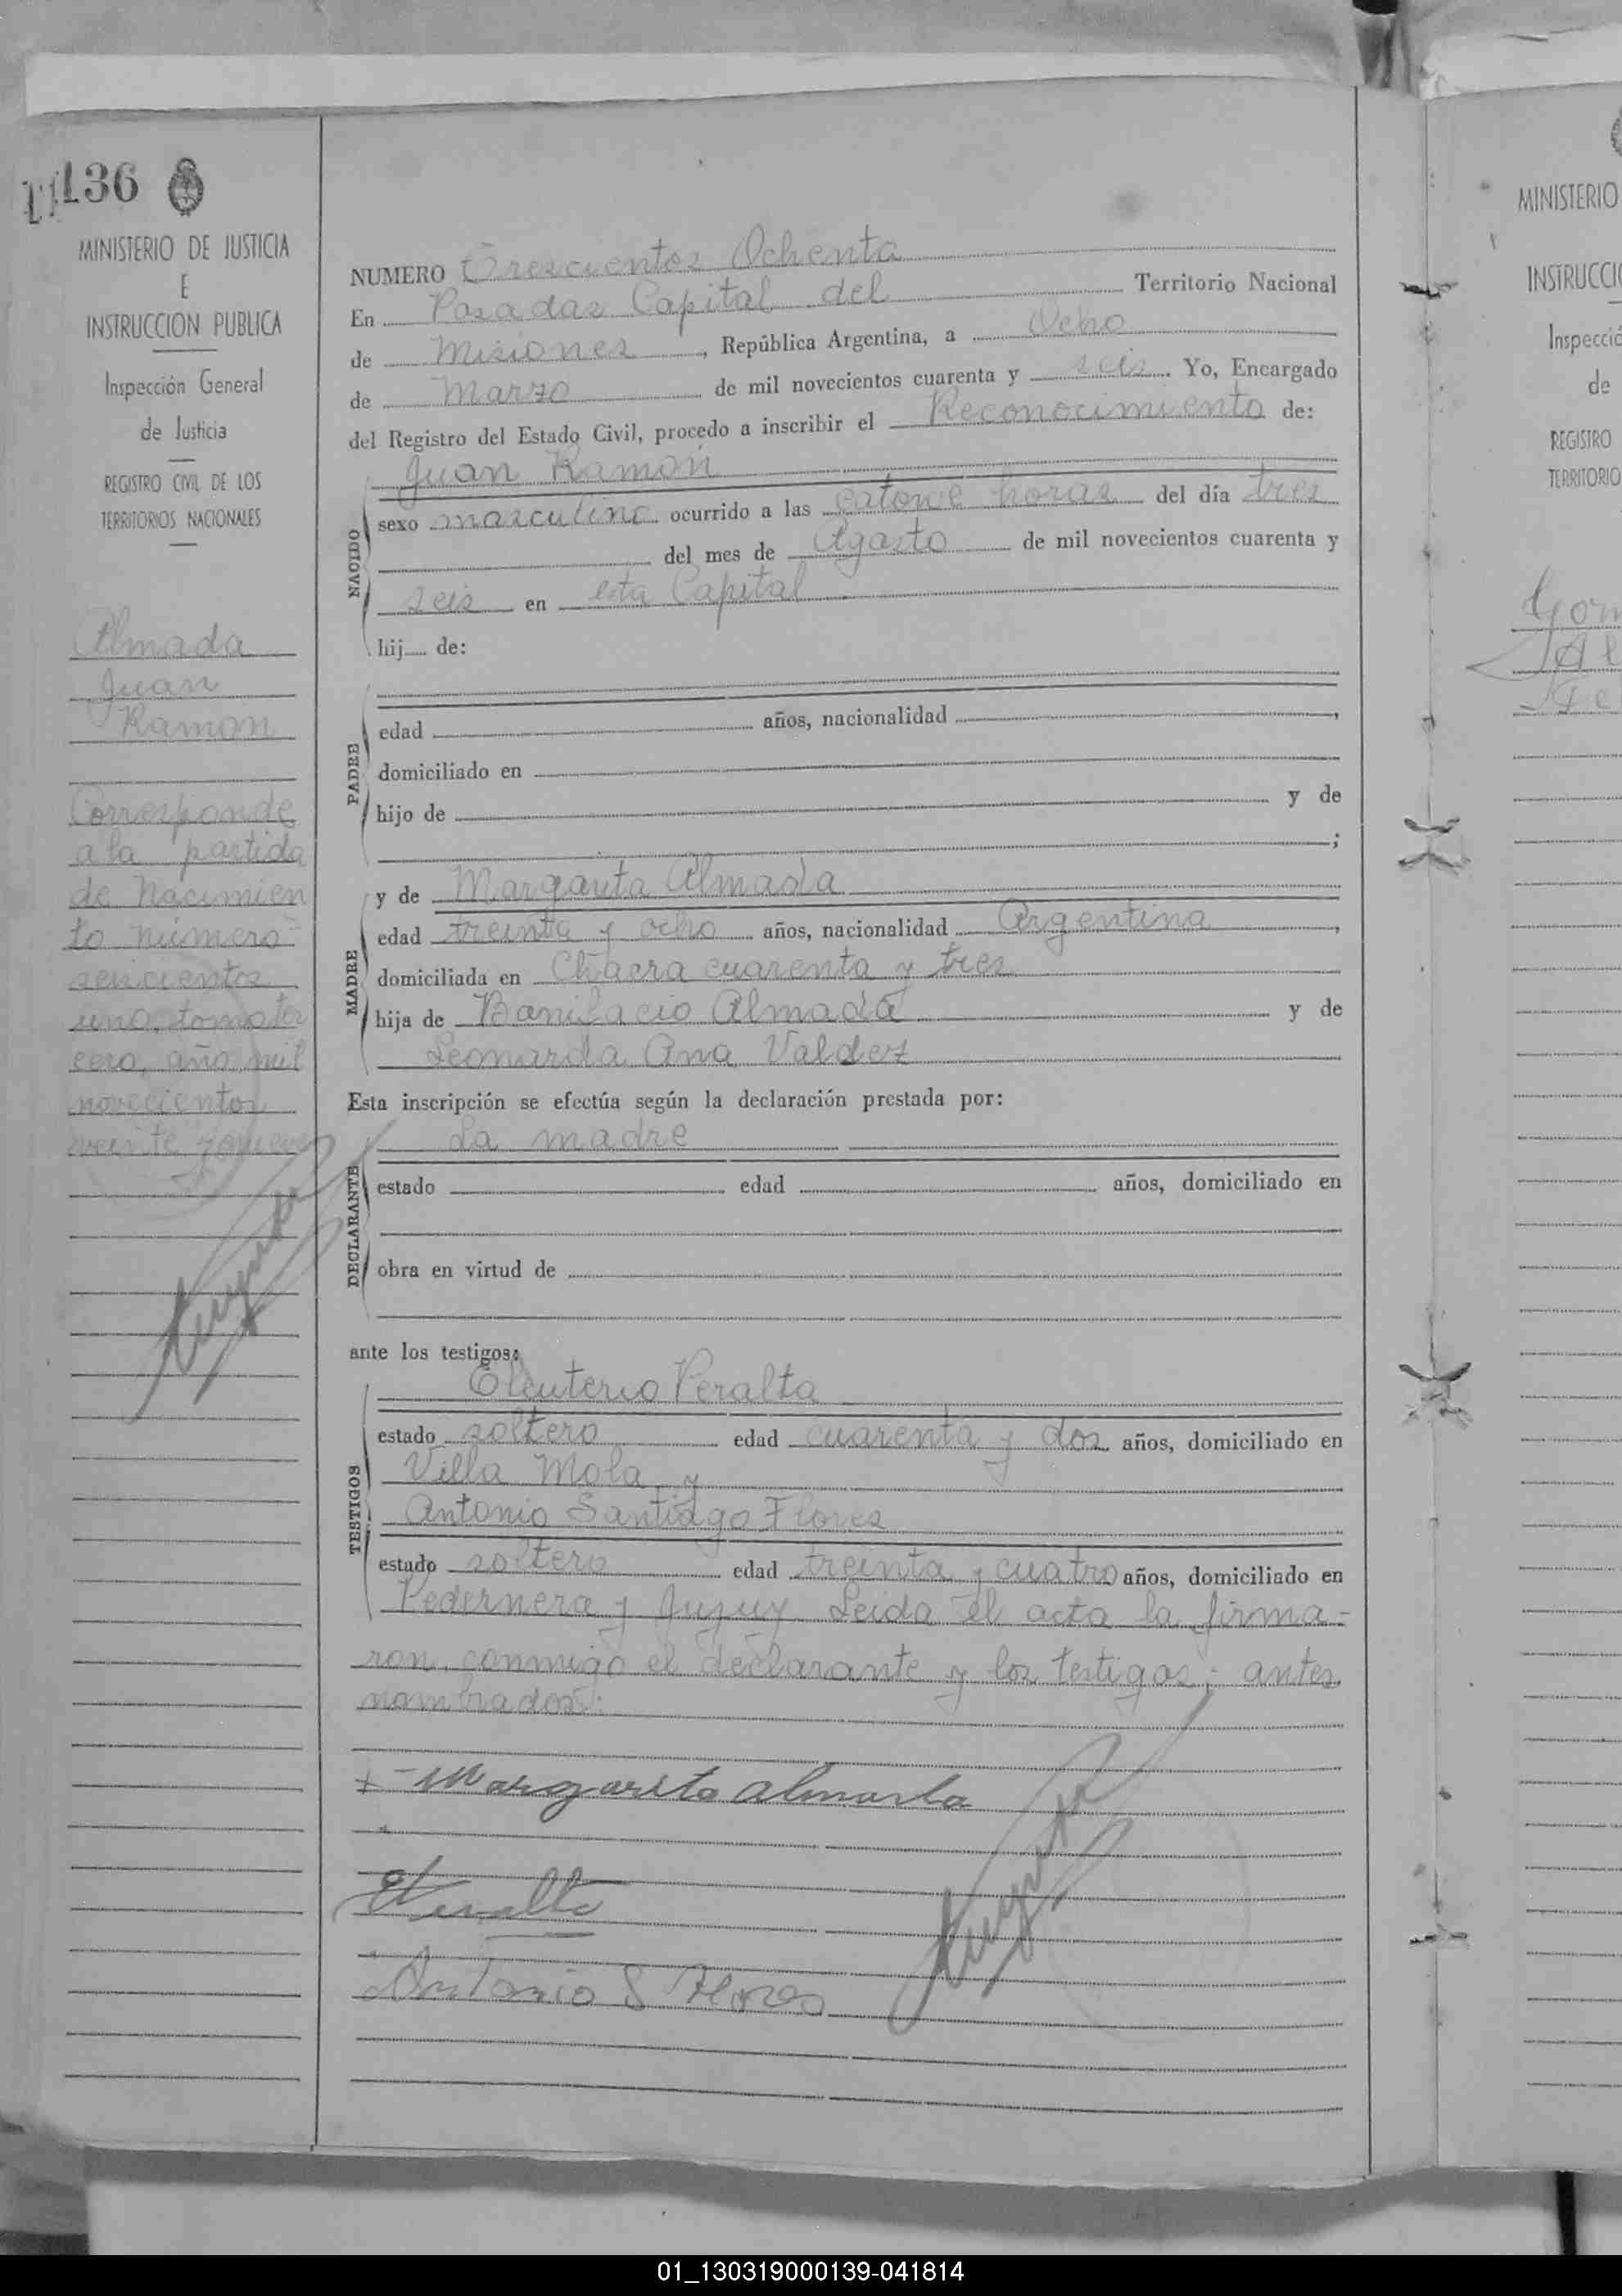 136
MINISTERIO DE JUSTICIA
E
INSTRUCCION PUBLICA
Inspección General
de Justicia
REGISTRO CIVIL DE LOS
TERRITORIOS NACIONALES
Almada
Juan
Ramon
Corresponde
a la partida
de Nacimien
to número
seiscientos
uno, tomo ter
cero, año mil
novecientos
veinte y nueve
NUMERO Trescientos Ochenta
En Posadas Capital del Territorio Nacional
de Misiones, República Argentina, a Ocho
de Marzo de mil novecientos cuarenta y seis. Yo, Encargado
del Registro del Estado Civil, procedo a inscribir el Reconocimiento de:
Juan Ramon
NACIDO
sexo masculino ocurrido a las catorce horas del día tres
del mes de Agosto de mil novecientos cuarenta y
seis en esta Capital
hij de:
PADRE
edad años, nacionalidad
domiciliado en
hijo de y de
;
MADRE
y de Margarita Almada
edad treinta y ocho años, nacionalidad Argentina,
domiciliada en Chacra cuarenta y tres
hija de Bonifacio Almada y de
Leonarda Ana Valdez
Esta inscripción se efectúa según la declaración prestada por:
La madre
DECLARANTE
estado edad años, domiciliado en
obra en virtud de
ante los testigos:
TESTIGOS
Eleuterio Peralta
estado soltero edad cuarenta y dos años, domiciliado en
Villa Mola y
Antonio Santiago Flores
estado soltero edad treinta y cuatro años, domiciliado en
Pedernera y Jujuy. Leida el acta la firma-
ron conmigo el declarante y los testigos, antes
nombrados:
Margarita Almada
EPeralta
Antonio S Flores
MINISTERIO
INSTRUCCI
Inspecció
de
REGISTRO
TERRITORIO
01_130319000139-041814